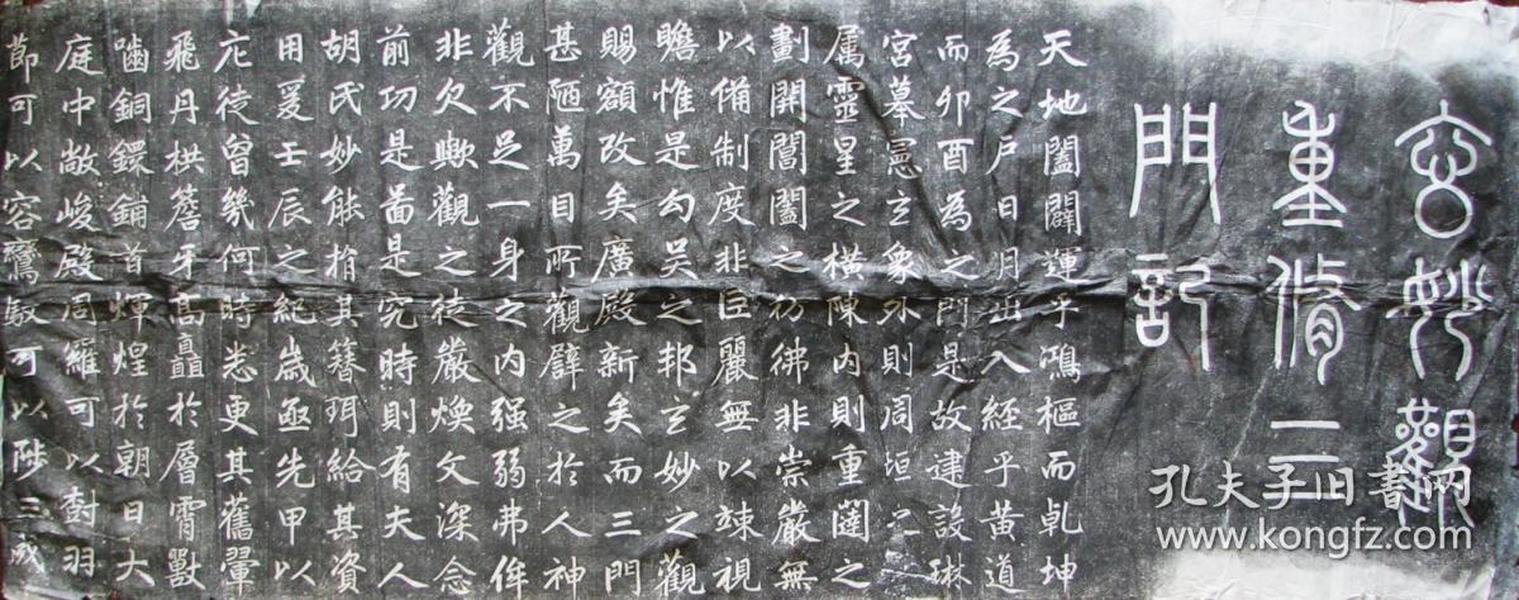 玄妙觀
重脩三
門記
天地闔闢運乎鴻樞而乹坤
為之戶日月出入經乎黃道
而卯酉為之門是故建設琳
宮摹憲玄象外則周垣之
属靈星之橫陳內則重闥之
劃開閶闔之彷彿非崇嚴無
以備制度非巨麗無以竦視
瞻惟是勾吳之邦玄妙之觀
賜額改矣廣殿新矣而三門
甚陋萬目所觀譬之於人神
觀不足一身之內强弱弗侔
非欠歟觀之徒嚴煥文深念
前功是啚是究時則有夫人
胡氏妙能捐其簪珥給其資
用爰壬辰之紀歲亟先甲以
庀徒曾幾何時悉更其舊翬
飛丹栱簷牙髙矗於層霄獸
嚙銅鐶鋪首煇煌於朝日大
庭中敞峻殿周羅可以樹羽
莭可以容鸞馭可以陟三成
孔夫子旧书网
www.kongfz.com